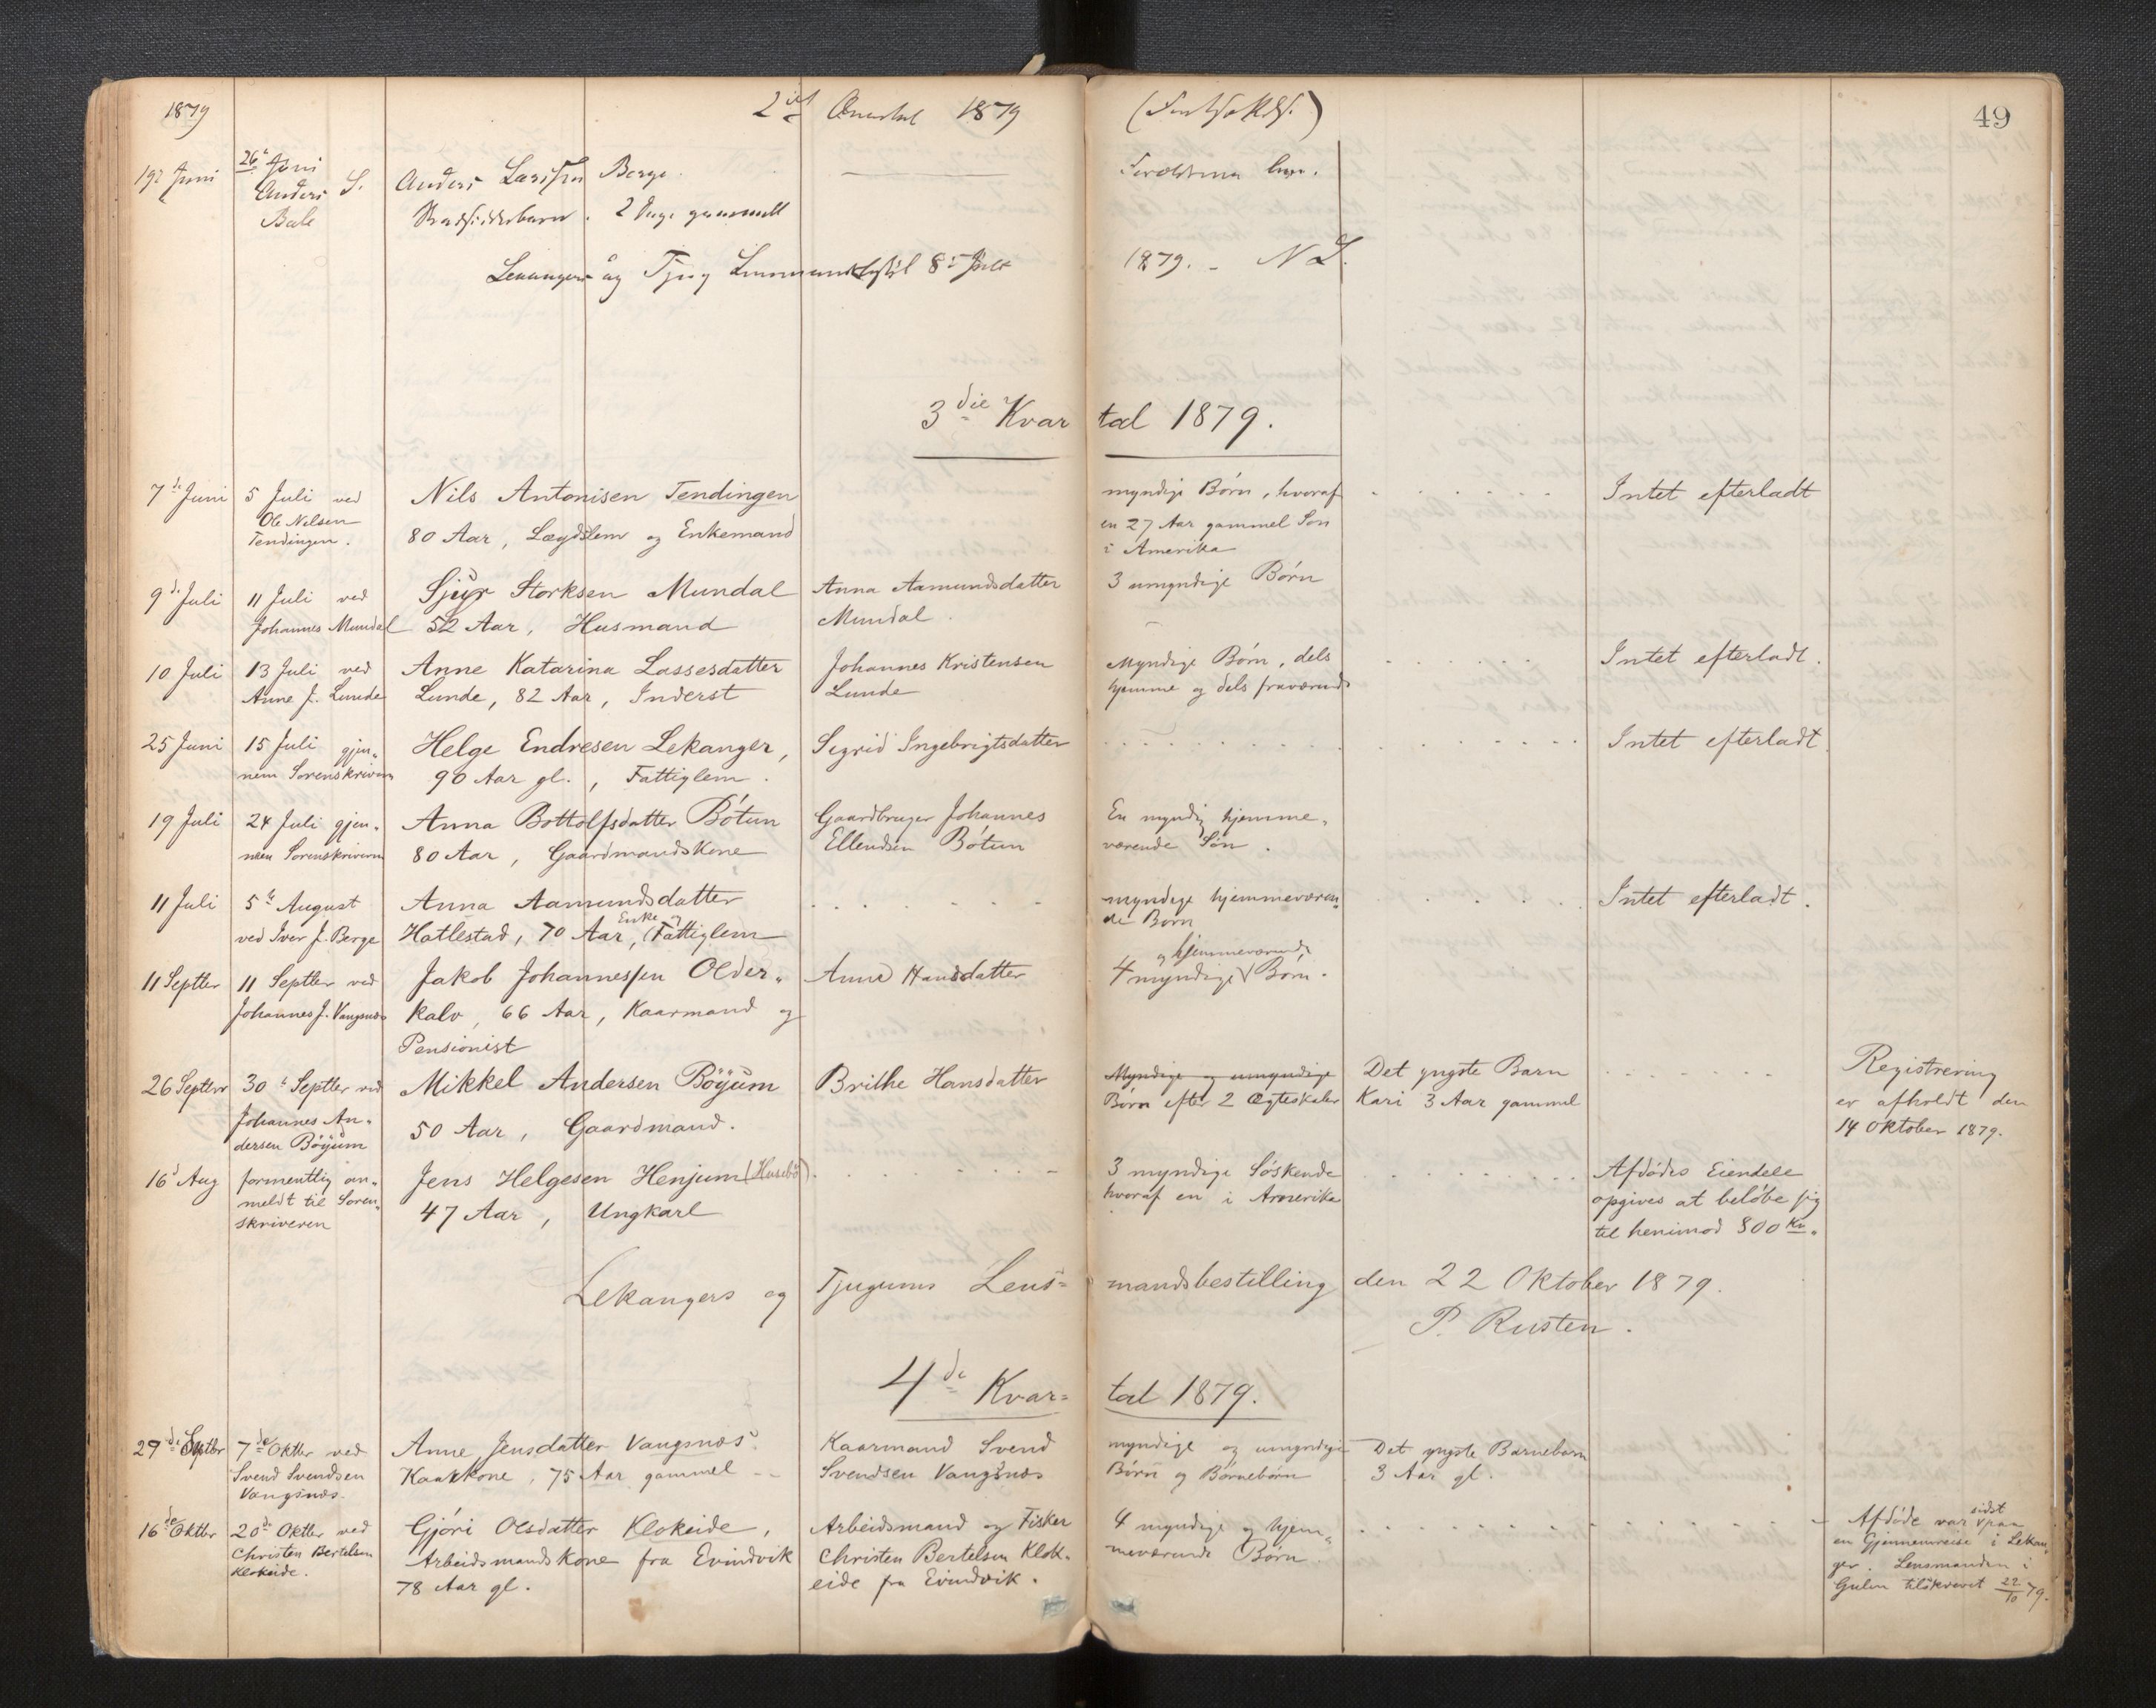 1879 2det Qvartal 1879 (Fortsættelse) 49
19de Juni
26de Juni
Anders S.
Bale
Anders Larssen Berge.
2 Dage gammelt
Forældrene lever.
Lekanger og Tjug Lensmandsbestil 8de Juli 1879. - N L.
3die Kvartal 1879.
7de Juni
5 Juli ved
Ole Nilsen
Tendingen.
Nils Antonisen Tendingen
80 Aar, Lægdslem og Enkemand
myndige Börn, hvoraf
en 27 Aar gammel Sön
i Amerika
Intet efterladt
9de Juli
11 Juli ved
Johannes Mundal
Sjur Storksen Mundal
52 Aar, Husmand
Anna Aamundsdatter
Mundal.
3 umyndige Börn
10 Juli
13 Juli ved
Anne J. Lunde
Anne Katarina Lassesdatter
Lunde, 82 Aar, Inderst
Johannes Kristensen
Lunde
Myndige Börn, dels
hjemme og dels fraværende
Intet efterladt.
25 Juni
15 Juli gjen-
nem Sorenskriveren
Helge Endresen Lekanger,
90 Aar gl., Fattiglem.
Sigrid Ingebrigtsdatter
Intet efterladt.
19 Juli
24 Juli gjen-
nem Sorenskriveren
Anna Bottolfsdatter Bötun
80 Aar, Gaardmandskone
Gaardbruger Johannes
Ellendsen Bötun
En myndig hjemme-
værende Sön.
11 Juli
5te August
ved Iver J. Berge
Anna Aamundsdatter
Hatlestad, 70 Aar, Enke og Fattiglem
myndige hjemmeværen-
de Börn
Intet efterladt.
11 Septbr
11 Septbr ved
Johannes J. Vangsnæs
Jakob Johannessen Older-
kalv, 66 Aar, Kaarmand og
Pensionist
Anna Hansdatter
4 myndige og hjemmeværende Börn.
26 Septbr
30te Septbr ved
Johannes An-
dersen Böÿum
Mikkel Andersen Böÿum
50 Aar, Gaardmand.
Brithe Hansdatter
Myndige og umyndige
Börn efter 2 Ægteskaber
Det yngste Barn
Kari 3 Aar gammel
Registrering
er afholdt den
14 Oktober 1879.
16de Aug
formentlig an-
meldt til Soren-
skriveren
Jens Helgesen Henjum (Husebö).
47 Aar, Ungkarl
3 myndige Söskende
hvoraf en i Amerika
Afdödes Eiendele
opgives at belöbe sig
til henimod 800 Kr.
Lekangers og Tjugums Lens-mandsbestilling den 22 Oktober 1879.
P. Rusten.
4de Kvar-tal 1879.
29de Septbr
7de Oktbr ved
Svend Svendsen
Vangsnæs.
Anne Jensdatter Vangsnæs
Kaarkone, 75 Aar gammel
Kaarmand Svend
Svendsen Vangsnæs
myndige og umyndige
Börn og Börnebörn
Det yngste Barnebarn
3 Aar gl.
16de Oktbr
20de Oktbr ved
Christen Bertelsen
Klokeide.
Gjöri Olsdatter Klokeide,
Arbeidsmandskone fra Evindvik
78 Aar gl.
Arbeidsmand og Fisker
Christen Bertelsen Klok-
eide fra Evindvik.
4 myndige og hjem-
meværende Börn.
Afdöde var sidst paa
en Gjennemreise i Lekan-
ger. Lensmanden i
Gulen tilskrevet 22/10 79.